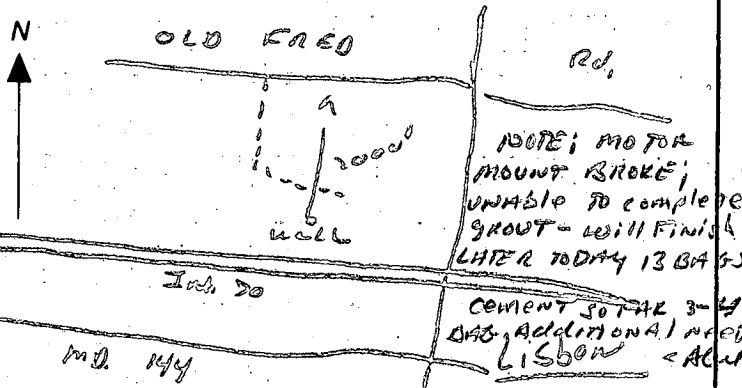 N
OLD FRED Rd.
2000'
well
NOTE; MOTOR
MOUNT BROKE;
UNABLE TO complete
GROUT - will Finish
LATER TODAY 13 BAGS
CEMENT SO FAR 3-4
BAG Additional need
Int. 70
LISBON
MD. 144